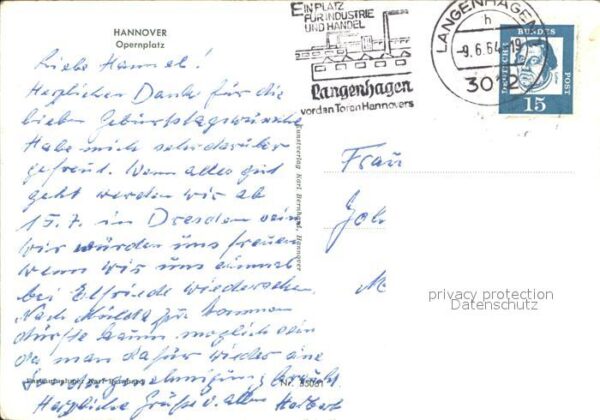 HANNOVER
Opernplatz
EIN PLATZ
FÜR INDUSTRIE
UND HANDEL
Langenhagen
vor den Toren Hannovers
LANGENHAGEN
h
-9.6.64-19
301
DEUTSCHE BUNDESPOST
15
Liebe Hannel!
Herzlichen Dank für die
lieben Geburtstagswünsche
Habe mich sehr darüber
gefreut. Wenn alles gut
geht werden wir ab
15.7. in Dresden sein
Wir würden uns freuen
wenn wir uns einmal
bei Elfriede wiedersehen.
Nach zu kommen
dürfte kaum möglich sein
da man dafür wieder eine
braucht
Herzliche Grüße v. allen Herbert
Kunstverlag Karl Bernhard, Hannover
Nr.
Frau
Joh
M
privacy protection
Datenschutz